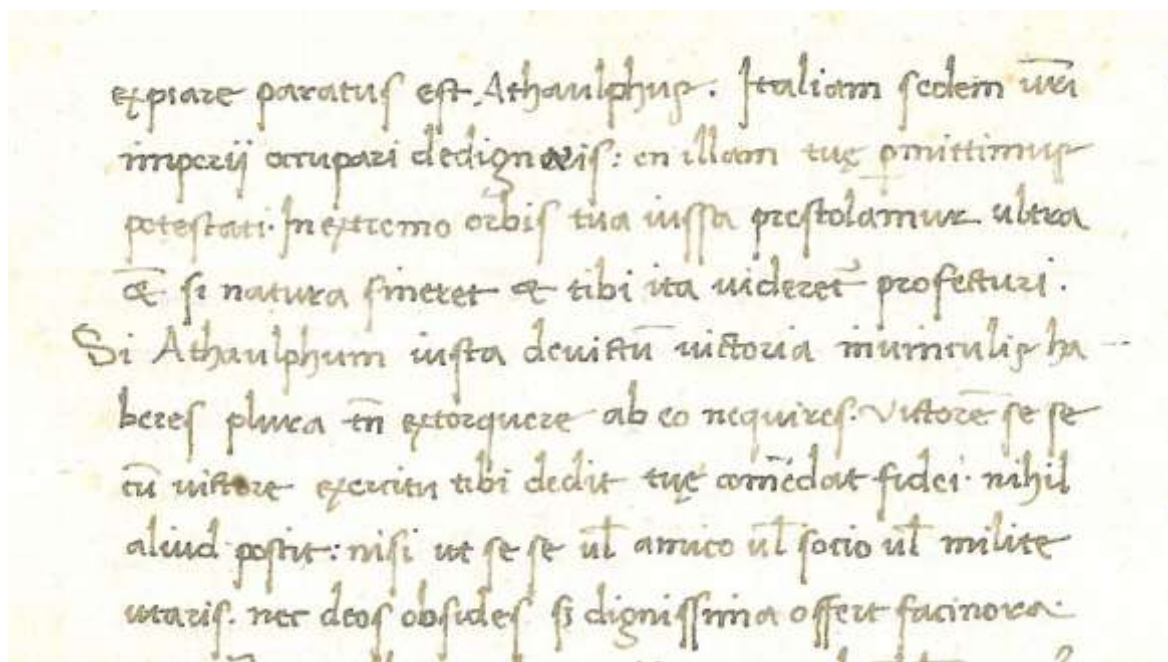 expiare paratus est Athaulphus. Italiam sedem ūri
imperij occupari dedignaris: en illam tuę ꝑmittimus
potestati. In extremo orbis tua iussa prestolamur ultra
& si natura sineret & tibi ita uideret᷑ profecturi.
Si Athaulphum iusta deuictū uictoria inuinculis ha
beres plura tn̄ extorquere ab eo nequires. Victorē se se
cū uictore exercitu tibi dedit tuę comēdat fidei. nihil
aliud poscit: nisi ut se se ul̄ amico ul̄ socio ul̄ milite
utaris. nec deos obsides si dignissima offert facinora.